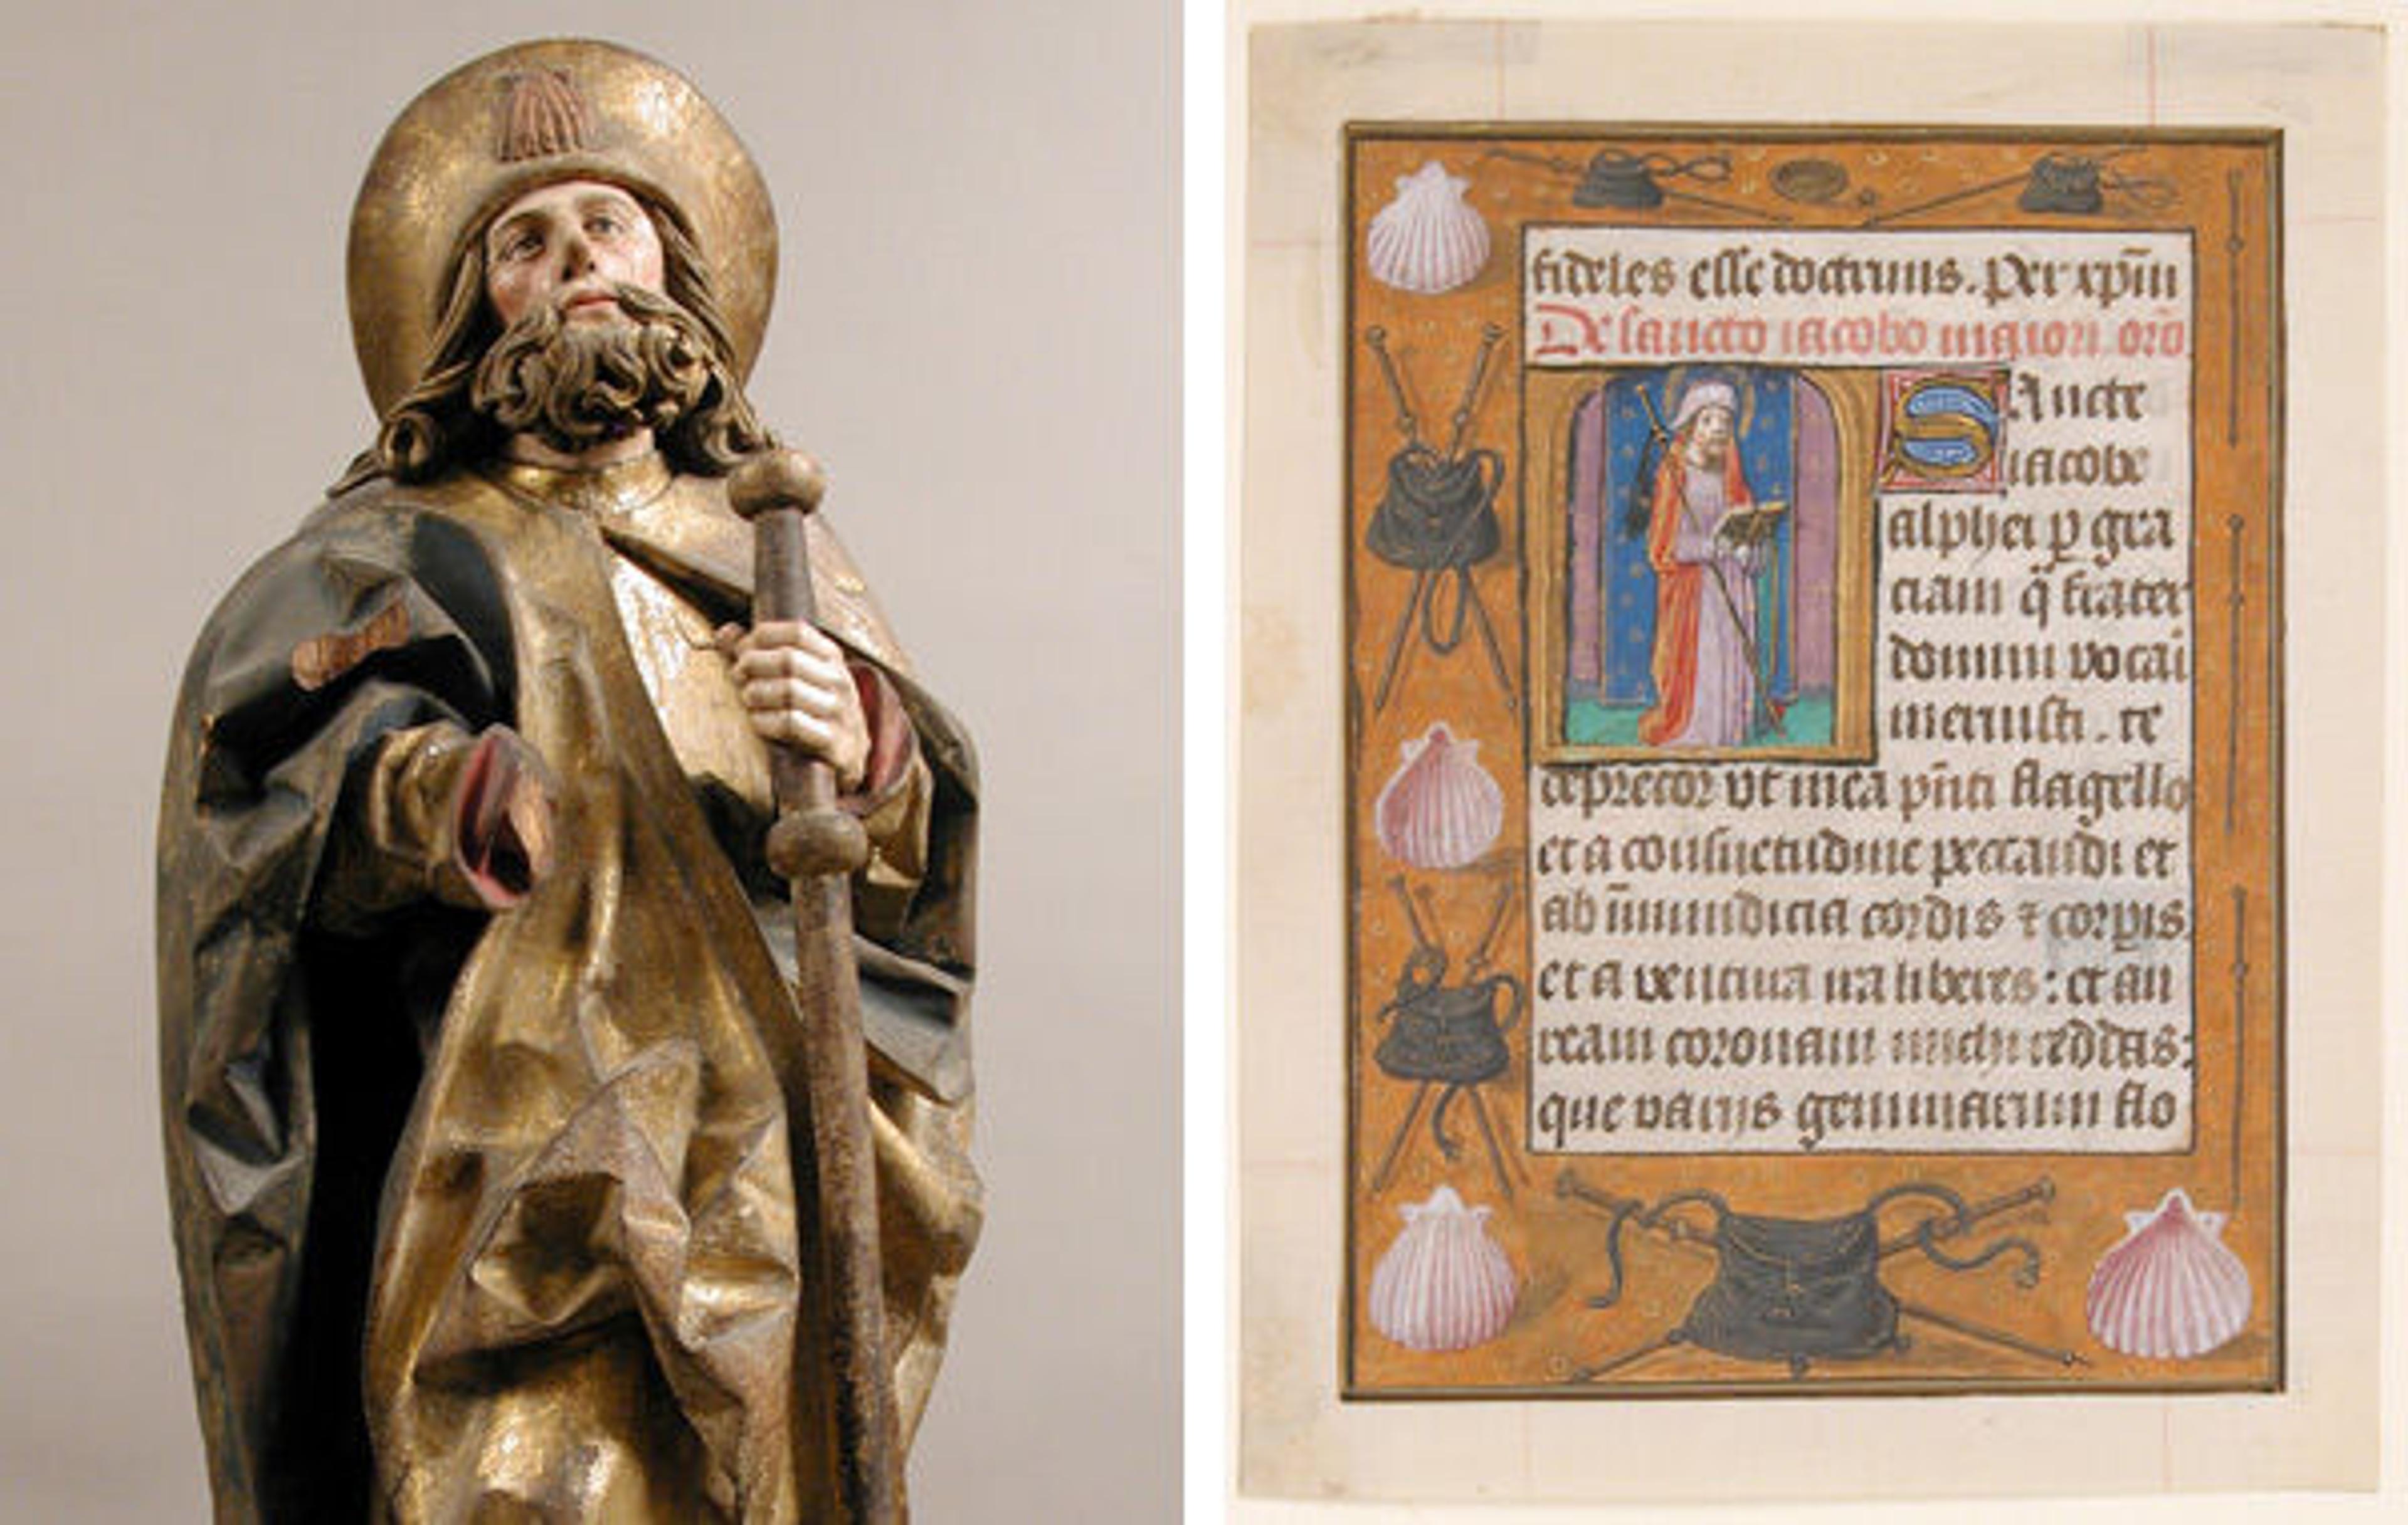 fideles esse doctrinis. Per xp̄m
De sancto iacobo maiori. orō
SAncte
iacobe
alphei p̱ gra
ciam q̄ frater
domini vocai
meruisti. te
deprecor vt mea pn̄ti flagello
et a consuetudine peccandi et
ab īmundicia cordis ⁊ corpis
et a ventura ira liberes: et au
ream coronam michi reddas:
que varijs gemmarum flo